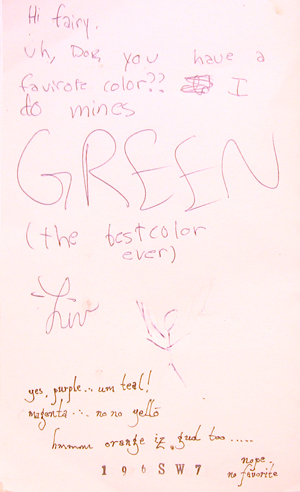 Hi fairy.
uh, Doe, you have a
favirote color?? I
do mines
GREEN
(the best color
ever)
-Liv
yes, purple... um teal!
magenta... no no yello
hmmmm orange iz gud too.....
nope.
no favorite
196SW7